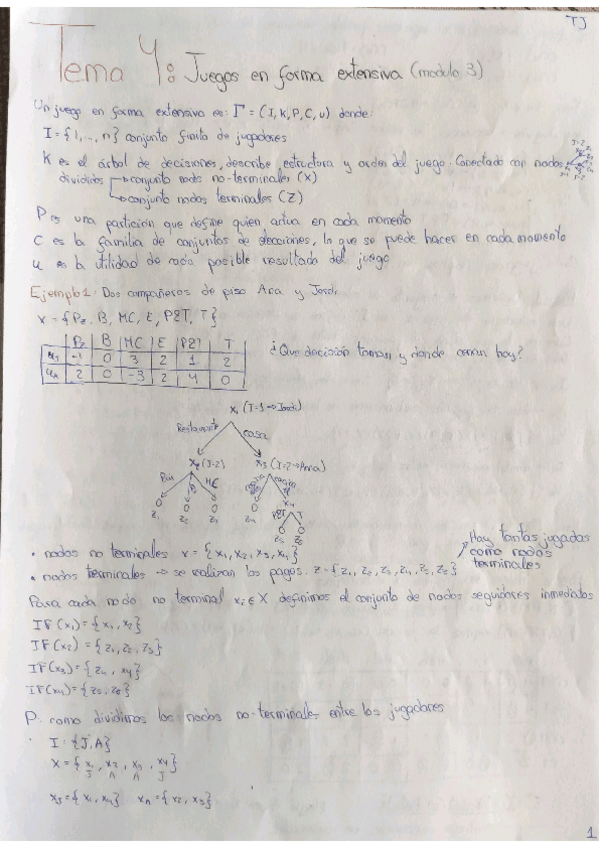 TJ
Tema 4: Juegos en forma extensiva (modulo 3)
Un juego en forma extensiva es: Γ = (I, K, P, C, u) donde:
I = {1, .., n} conjunto finito de jugadores
K es el árbol de decisiones, describe estructura y orden del juego. Conectado con nodos
divididos → conjunto nodos no-terminales (X)
→ conjunto nodos terminales (Z)
P es una partición que define quien actua en cada momento
C es la familia de conjuntos de elecciones, lo que se puede hacer en cada momento
u es la utilidad de cada posible resultado del juego
Ejemplo 1: Dos compañeros de piso Ana y Jordi
X = {Pz, B, MC, E, P2T, T}
Pz B MC E P2T T
uJ -1 0 3 2 1 2
uA 2 0 -3 2 4 0
¿Que decisión toman y donde cenan hoy?
x1 (J=1 → Jordi)
Restaurante casa
x2 (J=2) x3 (J=2 → Ana)
B MC
x4
P2T T
z1 z2 z3 z4 z5 z6
• nodos no terminales x = {x1, x2, x3, x4}
• nodos terminales → se realizan los pagos. z = {z1, z2, z3, z4, z5, z6}
Hay tantas jugadas
como nodos
terminales
Para cada nodo no terminal xi ∈ X definimos el conjunto de nodos seguidores inmediatos
IF(x1) = {x1, x2}
IF(x2) = {z1, z2, z3}
IF(x3) = {z4, x4}
IF(x4) = {z5, z6}
P. como dividimos los nodos no-terminales entre los jugadores
I: {J, A}
X = {x1, x2, x3, x4}
J A A J
xJ = {x1, x4} xA = {x2, x3}
1